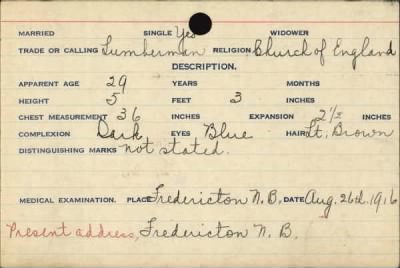 MARRIED SINGLE Yes WIDOWER
TRADE OR CALLING Lumberman RELIGION Church of England
DESCRIPTION.
APPARENT AGE 29 YEARS MONTHS
HEIGHT 5 FEET 3 INCHES
CHEST MEASUREMENT 36 INCHES EXPANSION 2 1/2 INCHES
COMPLEXION Dark EYES Blue HAIR Lt. Brown
DISTINGUISHING MARKS not stated.
MEDICAL EXAMINATION. PLACE Fredericton N.B. DATE Aug. 26th. 1916
Present address, Fredericton N.B.